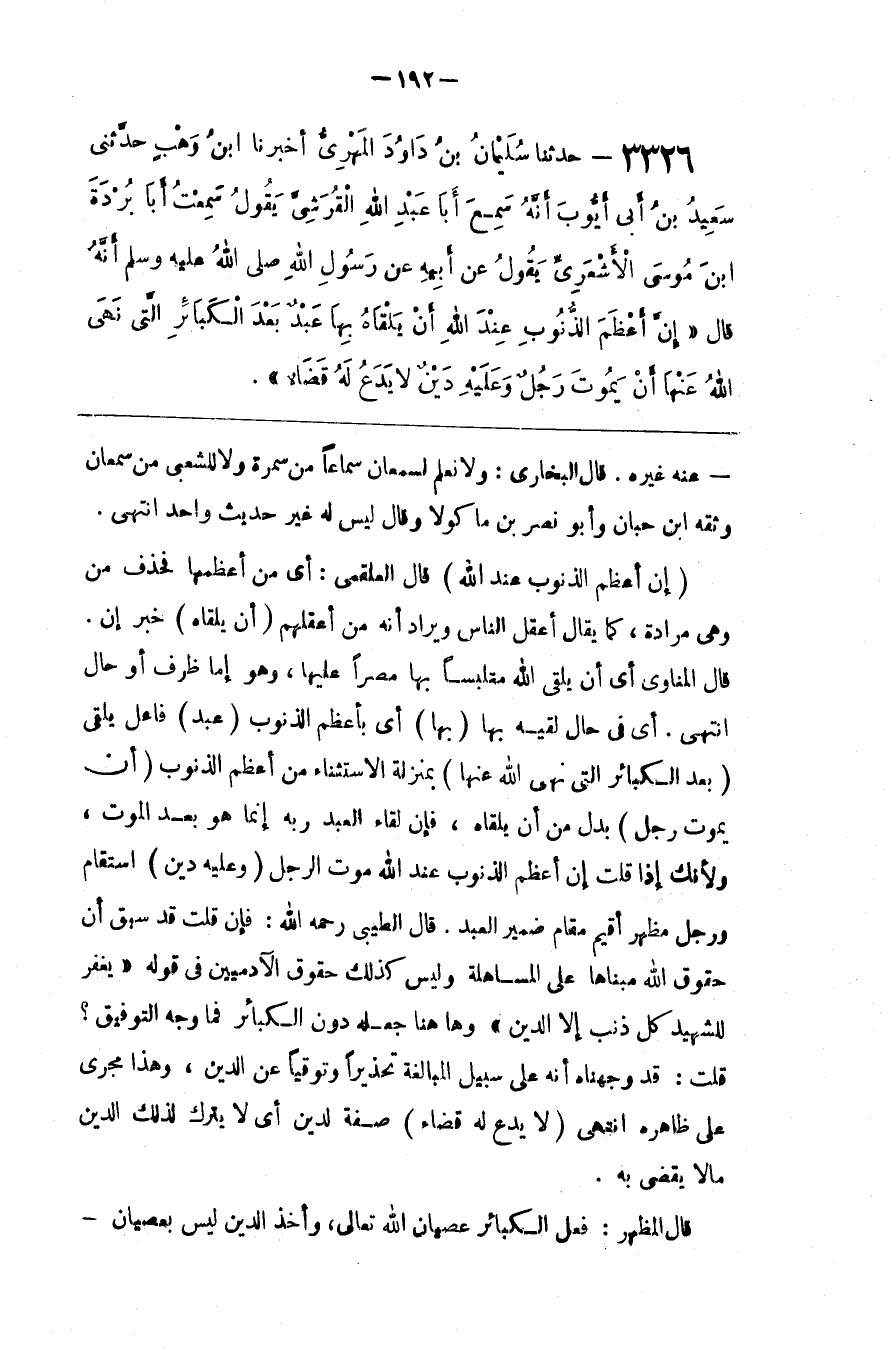 — ١٩٢ —
٣٣٢٦ — حدثنا سُلَيْمَانُ بنُ دَاوُدَ المَهْرِىُّ أخبرنا ابنُ وَهْبٍ حدَّثنى
سَعِيدُ بنُ أبى أيُّوبَ أنَّهُ سَمِعَ أبَا عَبْدِ اللهِ الْقُرَشِىَّ يَقُولُ سَمِعْتُ أبَا بُرْدَةَ
ابنَ مُوسَى الْأشْعَرِىَّ يَقُولُ عن أبِيهِ عن رَسُولِ اللهِ صلى اللهُ عليه وسلم أنَّهُ
قال « إنَّ أعْظَمَ الذُّنُوبِ عِنْدَ اللهِ أنْ يَلْقَاهُ بِهَا عَبْدٌ بَعْدَ الْكَبَائِرِ الَّتى نَهَى
اللهُ عَنْهَا أنْ يَمُوتَ رَجُلٌ وَعَلَيْهِ دَيْنٌ لا يَدَعُ لَهُ قَضَاء » .
— عنه غيره . قال البخارى : ولا نعلم لسمعان سماعاً من سمرة ولا للشعبى من سمعان
وثقه ابن حبان وأبو نصر بن ماكولا وقال ليس له غير حديث واحد انتهى .
( إن أعظم الذنوب عند الله ) قال العلقمى : أى من أعظمها فحذف من
وهى مرادة ، كما يقال أعقل الناس ويراد أنه من أعقلهم ( أن يلقاه ) خبر إن .
قال المناوى أى أن يلقى الله متلبساً بها مصراً عليها ، وهو إما ظرف أو حال
انتهى . أى فى حال لقيه بها ( بها ) أى بأعظم الذنوب ( عبد ) فاعل يلقى
( بعد الكبائر التى نهى الله عنها ) بمنزلة الاستثناء من أعظم الذنوب ( أن
يموت رجل ) بدل من أن يلقاه ، فإن لقاء العبد ربه إنما هو بعد الموت ،
ولأنك إذا قلت إن أعظم الذنوب عند الله موت الرجل ( وعليه دين ) استقام
ورجل مظهر أقيم مقام ضمير العبد . قال الطيبى رحمه الله : فإن قلت قد سبق أن
حقوق الله مبناها على المساهلة وليس كذلك حقوق الآدميين فى قوله « يغفر
للشهيد كل ذنب إلا الدين » وها هنا جعله دون الكبائر فما وجه التوفيق ؟
قلت : قد وجهناه أنه على سبيل المبالغة تحذيراً وتوقياً عن الدين ، وهذا مجرى
على ظاهره انتهى ( لا يدع له قضاء ) صفة لدين أى لا يترك لذلك الدين
مالا يقضى به .
قال المظهر : فعل الكبائر عصيان الله تعالى، وأخذ الدين ليس بعصيان —